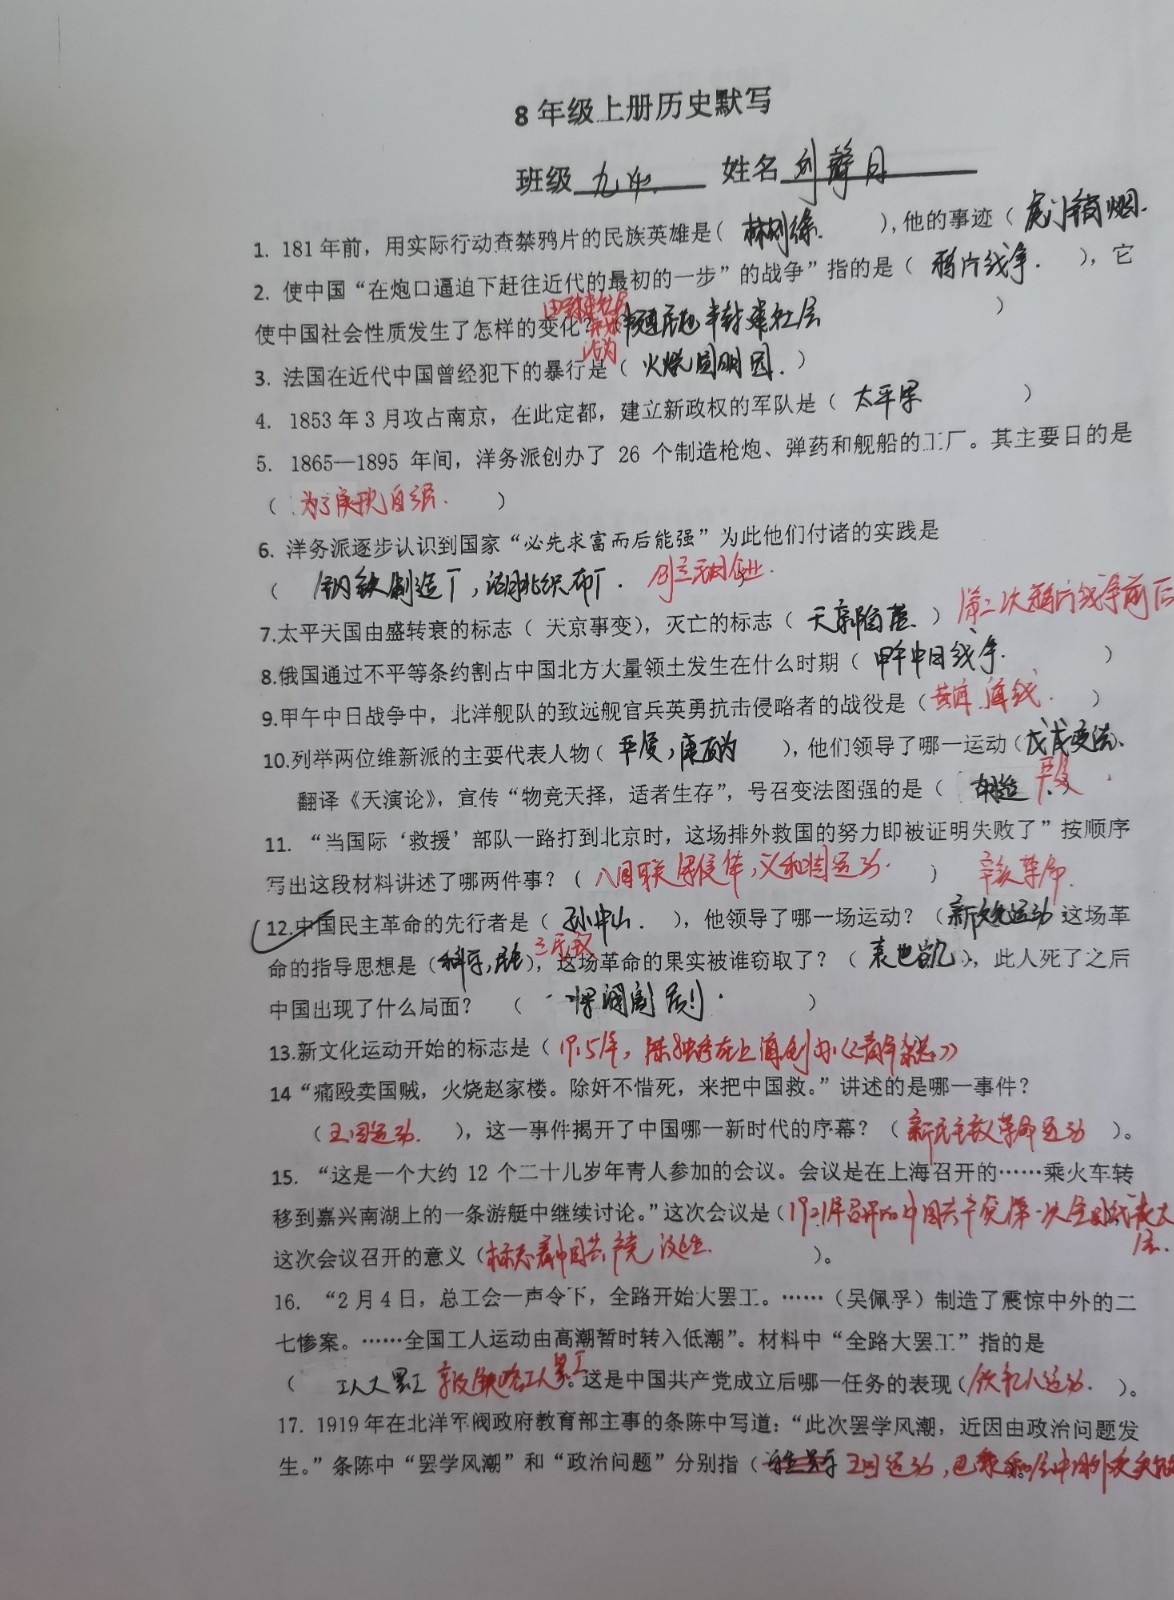 8年级上册历史默写
班级 九 姓名 刘 月
1. 181年前，用实际行动查禁鸦片的民族英雄是（ 林则徐. ），他的事迹（ 虎门销烟.
2. 使中国“在炮口逼迫下赶往近代的最初的一步”的战争”指的是（ 鸦片战争. ），它
使中国社会性质发生了怎样的变化？ 半殖民地半封建社会 ）
3. 法国在近代中国曾经犯下的暴行是（ 火烧圆明园. ）
4. 1853年3月攻占南京，在此定都，建立新政权的军队是（ 太平军 ）
5. 1865—1895 年间，洋务派创办了 26 个制造枪炮、弹药和舰船的工厂。其主要目的是
（ 为了实现自强. ）
6. 洋务派逐步认识到国家“必先求富而后能强”为此他们付诸的实践是
（ 钢铁制造厂，湖北织布厂. 创立民用企业.
7.太平天国由盛转衰的标志（ 天京事变），灭亡的标志（ 天京陷落 ） 第二次鸦片战争前后
8.俄国通过不平等条约割占中国北方大量领土发生在什么时期（ 甲午中日战争. ）
9.甲午中日战争中，北洋舰队的致远舰官兵英勇抗击侵略者的战役是（ 黄海海战. ）
10.列举两位维新派的主要代表人物（ 严复，康有为 ），他们领导了哪一运动（戊戌变法.
翻译《天演论》，宣传“物竞天择，适者生存”，号召变法图强的是（ 严复
11. “当国际‘救援’部队一路打到北京时，这场排外救国的努力即被证明失败了”按顺序
写出这段材料讲述了哪两件事？（ 八国联军侵华，义和团运动. ） 辛亥革命.
12.中国民主革命的先行者是（ 孙中山. ），他领导了哪一场运动？（新文化运动 这场革
命的指导思想是（科学，民主 三民主义 ），这场革命的果实被谁窃取了？（ 袁世凯 ），此人死了之后
中国出现了什么局面？ （ 军阀割据. ）
13.新文化运动开始的标志是（ 1915年，陈独秀在上海创办《青年杂志》
14“痛殴卖国贼，火烧赵家楼。除奸不惜死，来把中国救。”讲述的是哪一事件？
（ 五四运动. ），这一事件揭开了中国哪一新时代的序幕？（ 新民主主义革命运动 ）。
15. “这是一个大约 12 个二十几岁年青人参加的会议。会议是在上海召开的……乘火车转
移到嘉兴南湖上的一条游艇中继续讨论。”这次会议是（1921年召开的中国共产党第一次全国代表大会.
这次会议召开的意义（标志着中国共产党诞生. ）。
16. “2月4日，总工会一声令下，全路开始大罢工。……（吴佩孚）制造了震惊中外的二
七惨案。……全国工人运动由高潮暂时转入低潮”。材料中“全路大罢工”指的是
（ 工人大罢工 京汉铁路工人罢工。这是中国共产党成立后哪一任务的表现（领导工人运动. ）。
17. 1919年在北洋军阀政府教育部主事的条陈中写道：“此次罢学风潮，近因由政治问题发
生。”条陈中“罢学风潮”和“政治问题”分别指（ 五四运动，巴黎和会中国外交失败